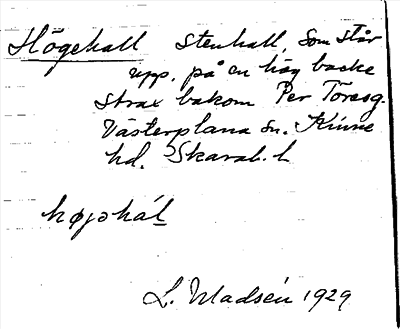 Högehall stenhall, som står
upp. på en hög backe
strax bakom Per Töresg.
Västerplana sn. Kinne
hd. Skarab. l
højshál
L. Madsén 1929